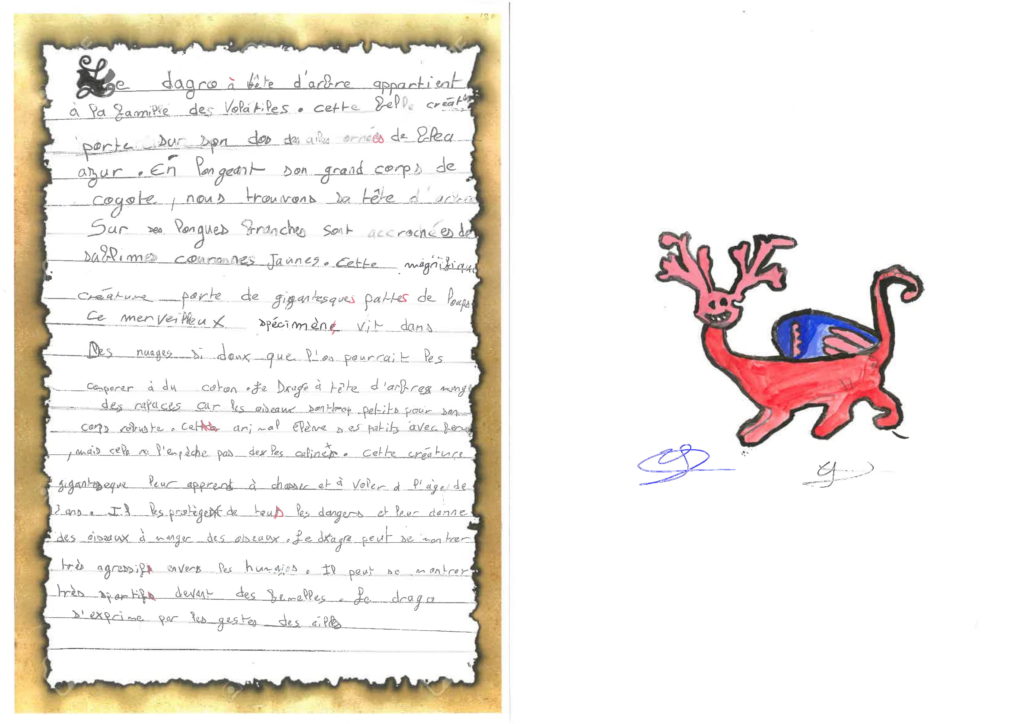 Le dagro à tête d'arbre appartient
à la famille des volatiles. cette belle créat
porte sur son dos des ailes ornées de blea
azur. En longeant son grand corps de
coyote, nous trouvons sa tête d'arbre
Sur ses longues branches sont accrochées de
sablimes couronnes jaunes. cette magnifique
créature porte de gigantesques pattes de loups
Ce merveilleux spécimène vit dans
Des nuages si doux que l'on pourrait les
comparer à du coton. Le Drago à tête d'arbres mange
des rapaces car les oiseaux sont trop petits pour son
corps robuste. cet animal élève ses petits avec
, mais cela n'empêche pas des les caliner. cette créature
gigantesque leur apprend à chasser et à voler à l'age de
ans. Il les protège de tous les dangers et leur donne
des oiseaux à manger des oiseaux. Le dragro peut se montrer
très agressifs envers les humains. Il peut se montrer
très devant des femelles. Le drago
s'exprime par les gestes des ailes